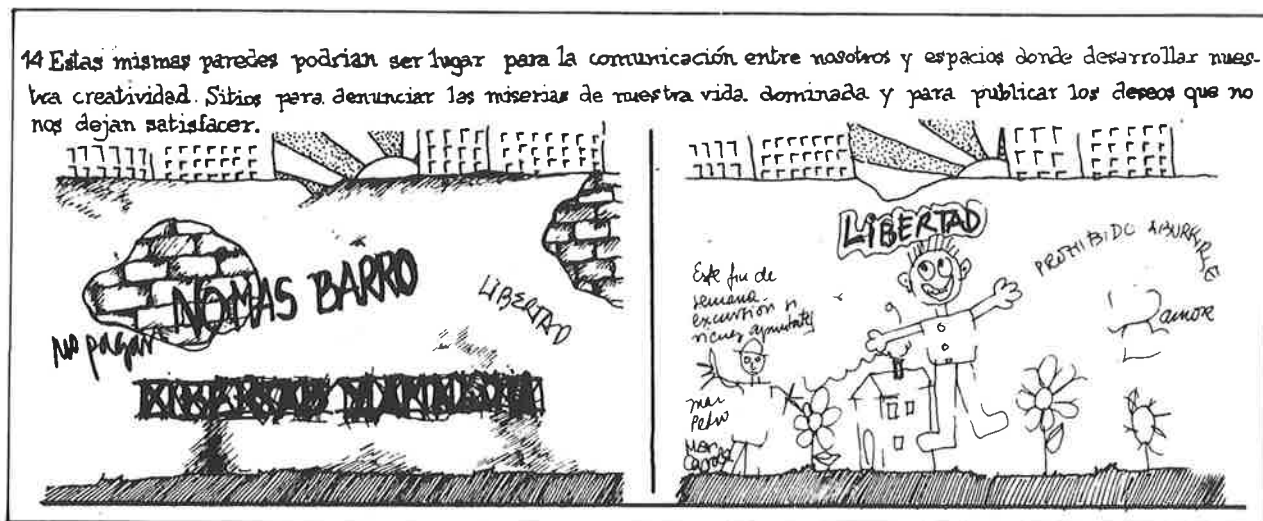 14 Estas mismas paredes podrian ser lugar para la comunicación entre nosotros y espacios donde desarrollar nues-
tra creatividad. Sitios para denunciar las miserias de nuestra vida. dominada y para publicar los deseos que no
nos dejan satisfacer.
NO MAS BARRO
LIBERTAD
No pagar
LIBERTAD
PROHIBIDO ABURRIRSE
Este fin de
semana
excursion si
vienes apuntate
amor
mar
Pedro
Mari
Carola